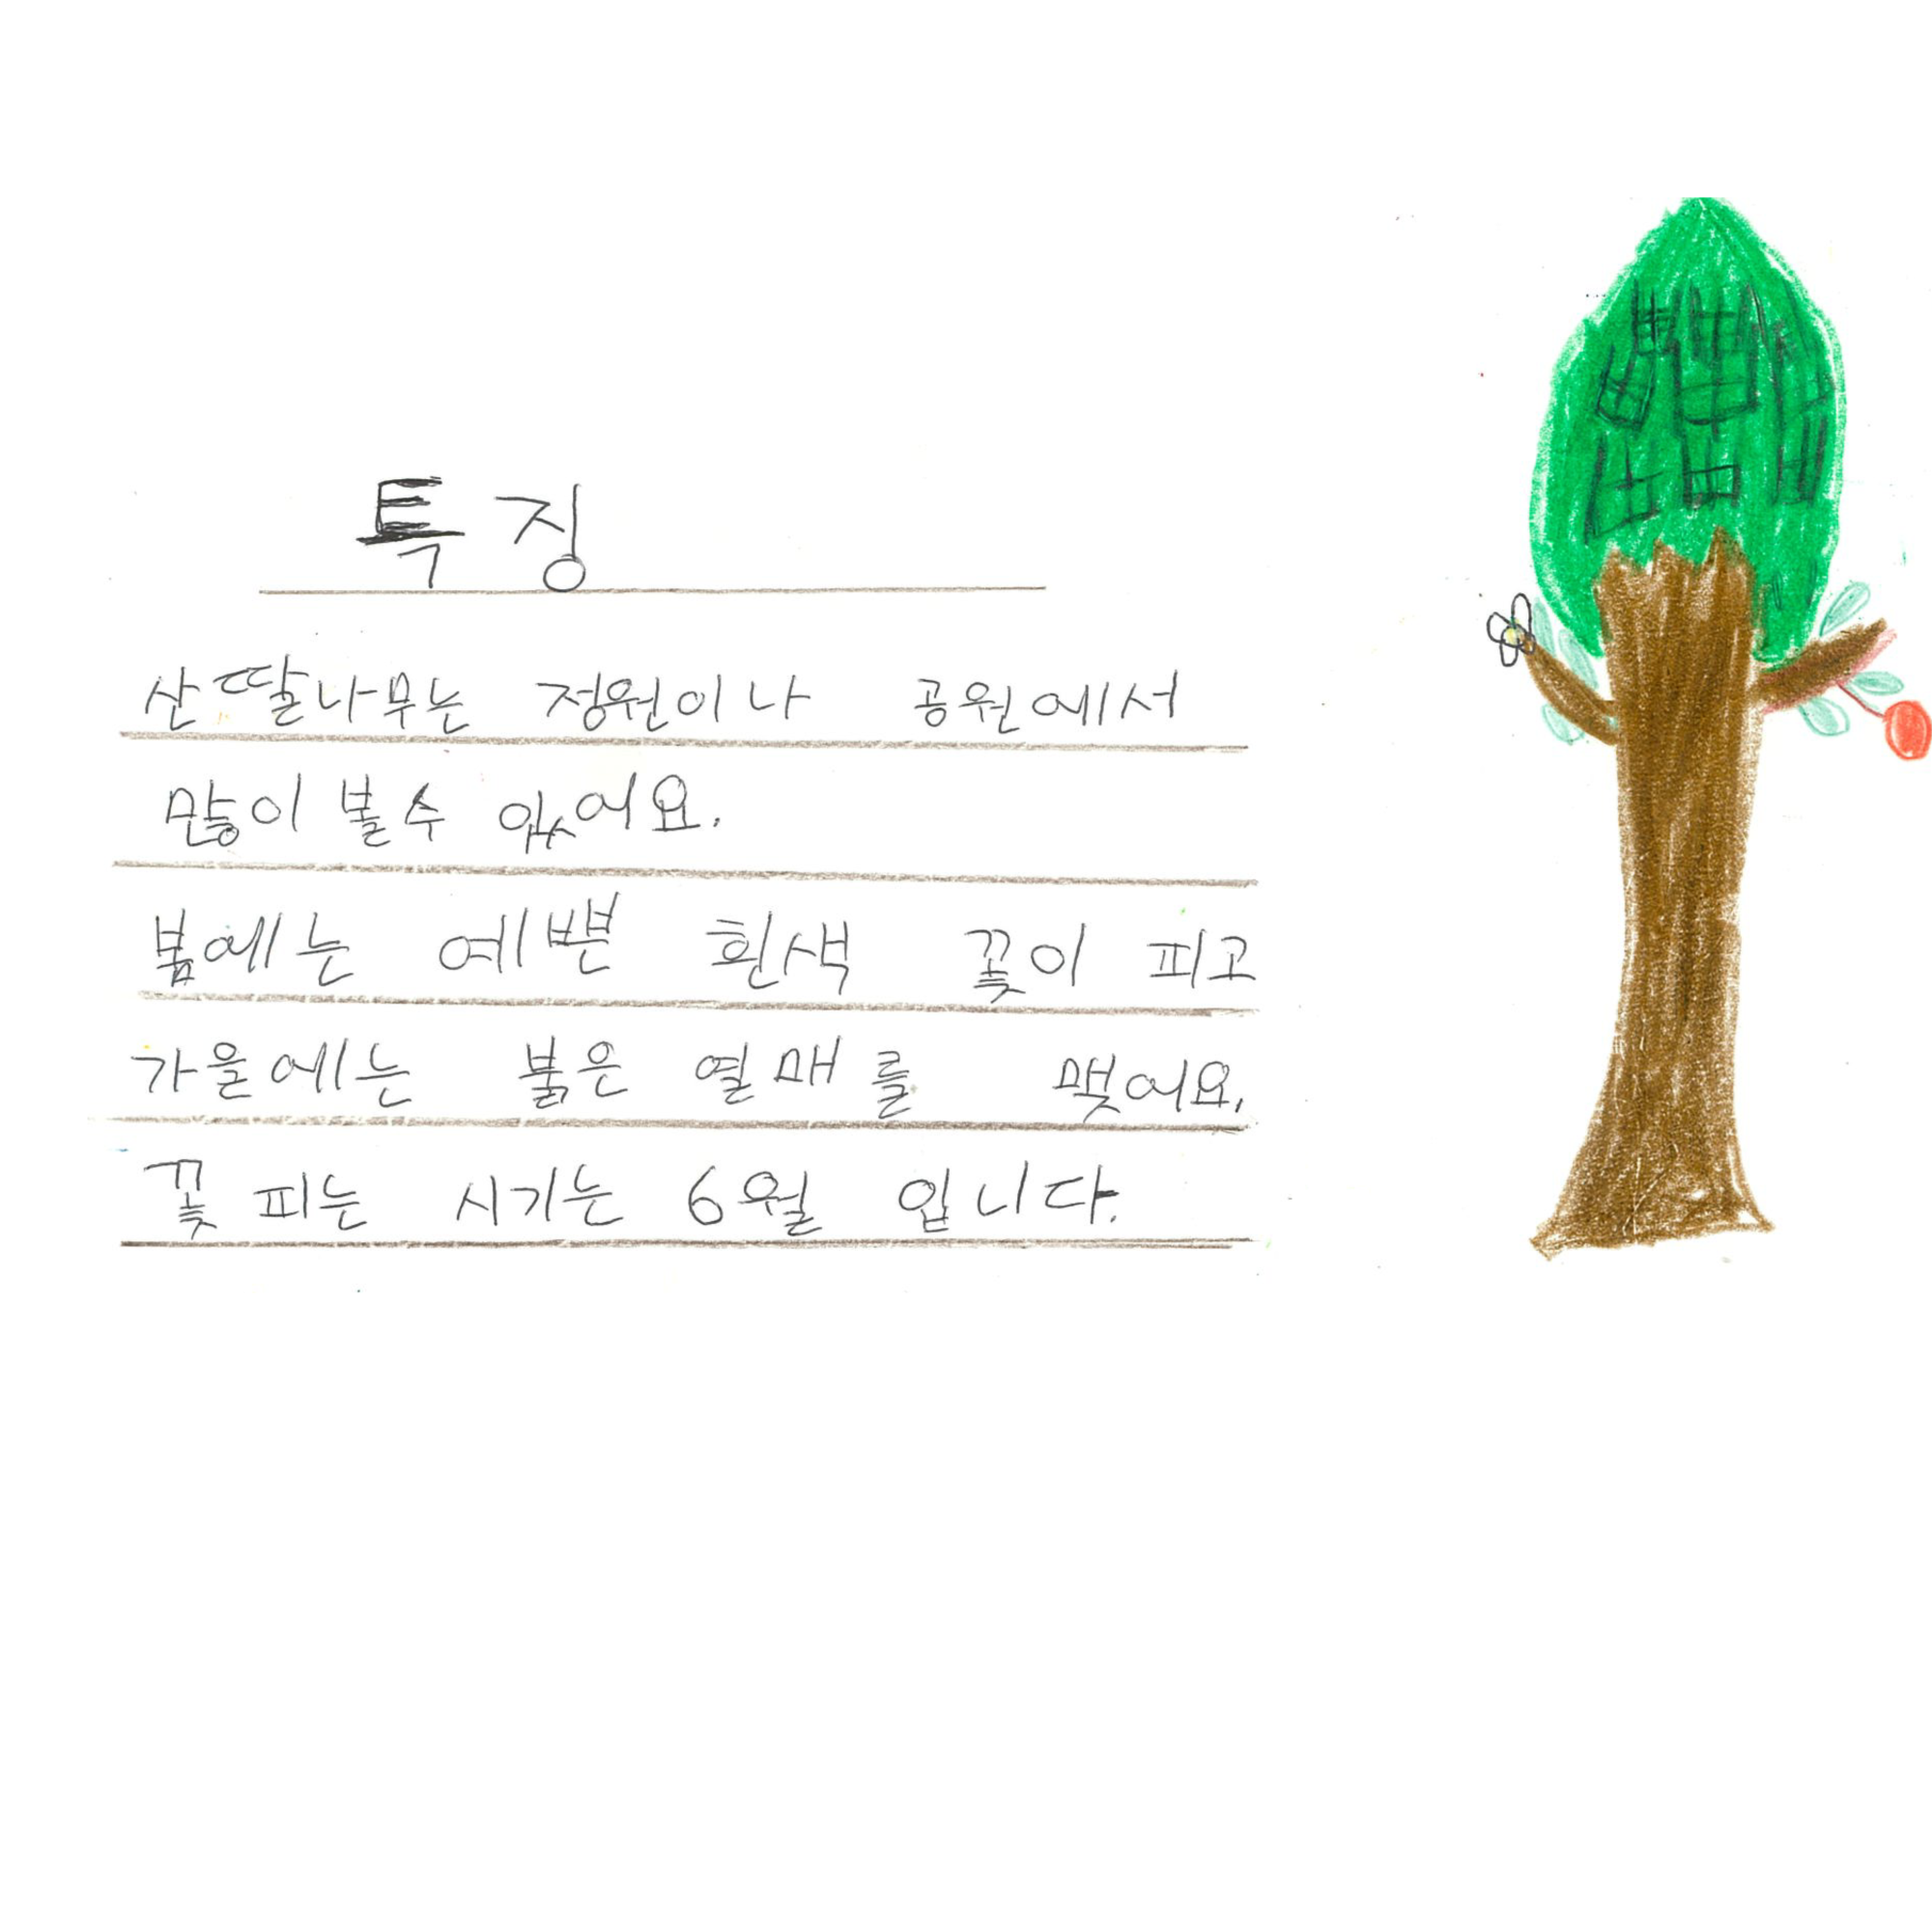 특징
산딸나무는 정원이나 공원에서
많이 볼수 있어요.
봄에는 예쁜 흰색 꽃이 피고
가을에는 붉은 열매를 맺어요.
꽃 피는 시기는 6월 입니다.